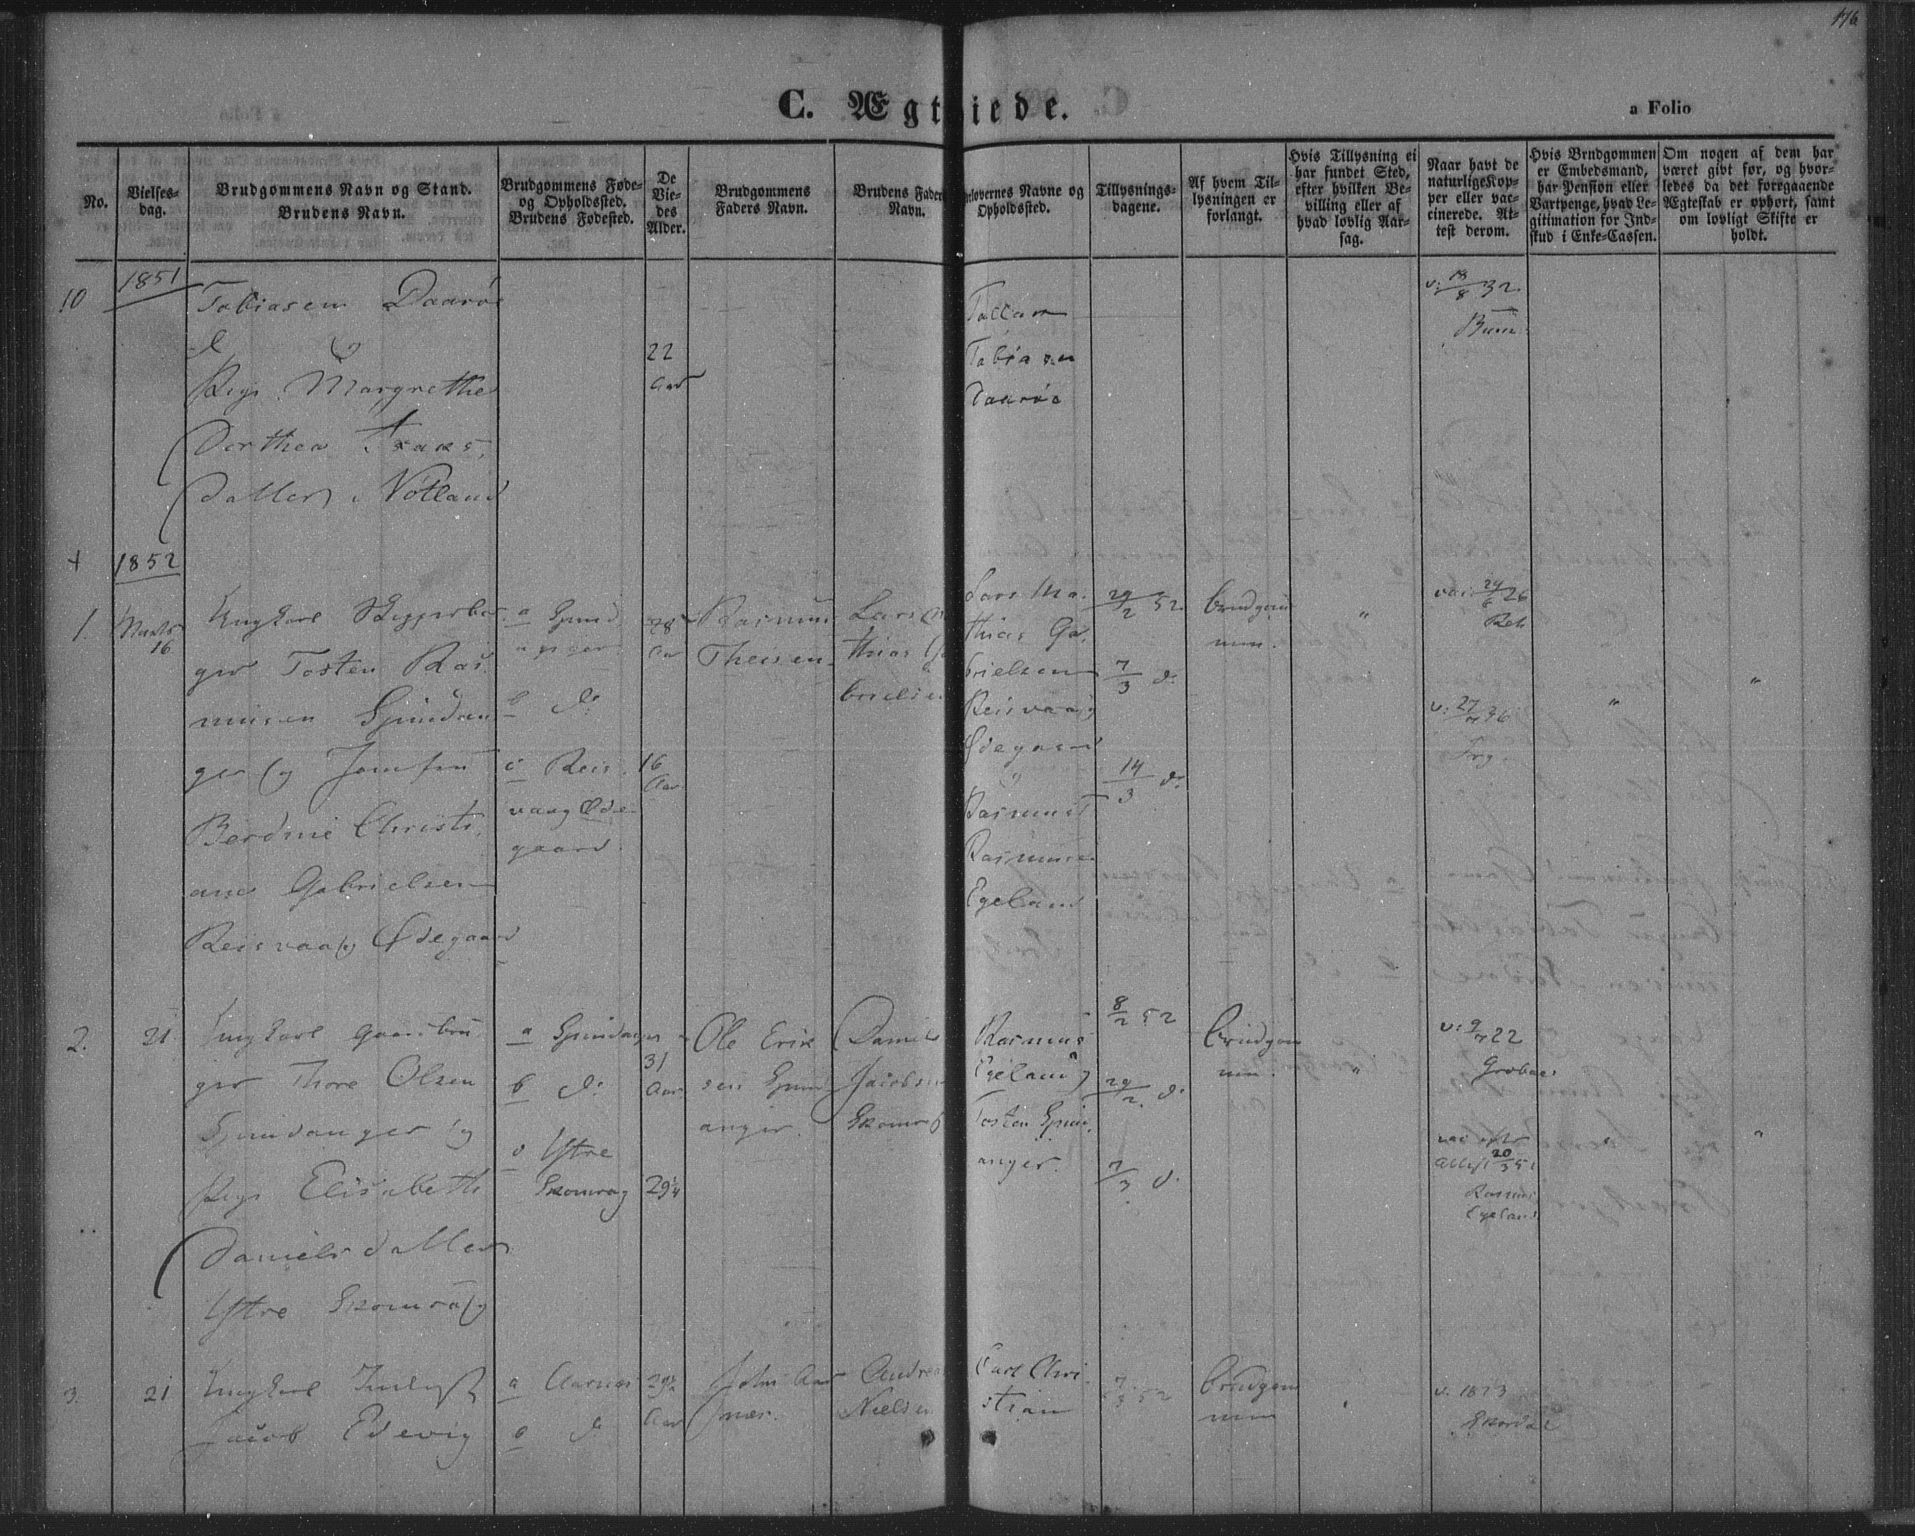 176
C. Ægtviede.
a Folio
No.
Vielses-
dag.
Brudgommens Navn og Stand.
Brudens Navn.
Brudgommens Føde-
og Opholdssted.
Brudens Fødested.
De
Vie-
des
Alder.
Brudgommens
Faders Navn.
Brudens Faders
Navn.
Forlovernes Navne og
Opholdssted.
Tillysnings-
dagene.
Af hvem Til-
lysningen er
forlangt.
Hvis Tillysning ei
har fundet Sted,
efter hvilken Be-
villing eller af
hvad lovlig Aar-
sag.
Naar havt de
naturlige Kop-
per eller vac-
cinerede. At-
test derom.
Hvis Brudgommen
er Embedsmand,
har Pension eller
Vartpenge, hvad Le-
gitimation for Ind-
skud i Enke-Cassen.
Om nogen af dem har
været givt før, og hvor-
ledes da det forrgaaende
Ægteskab er ophørt, samt
om lovligt Skifte er
holdt.
10
1851
Tobiasen Daarøe
&
Pige Margrethe
Dorthea Isaks
datter Nötland
22
Aar
Tallak
Tobiasen
Daarøe
v: 18/8 32
1852
1.
Marts
16
Ungkarl Skipperbor
ger Tosten Ras
musen Spindan
ger og Jomfru
Berdine Christi
ane Gabrielsen
Reisvaag Ødegaard
a Spind
anger
b do
c Reis
vaag Øde
gaard
28
Aar
16
Aar
Rasmus
Theisen
Lars Ma
thias Ga
brielsen
Lars Ma
thias Ga
brielsen
Reisvaag
Ødegaard
og
Rasmus
Rasmusen
Egeland
29/2 52
7/3 do
14/3 do
Brudgom
men.
24/8 26
v: 27/ 36
2.
21
Ungkarl Gaardbru
ger Thore Olsen
Spindanger og
Pige Elisabeth
Danielsdatter
Ystre Skomrag
a Spindanger
b do
c Ystre
Skomrag
31
Aar
29¼
Ole Erik
sen Spind
anger.
Daniel
Jacobsen
Skomrag
Rasmus
Egeland
Tosten Spind
anger.
8/2 52
29/2 do
7/3 d.
Brudgom
men.
v: 9/ 22
Grobae
vac efter
Attest 20/3 51
Rasmus
Egeland
3.
21
Ungkarl
Jacob Edevig
a Aarnæs
b d
29½
Aar
John Aar
næs.
Andreas
Nielsen
Carl Chri
stian
7/3 52
Brudgom
men
v. 1823